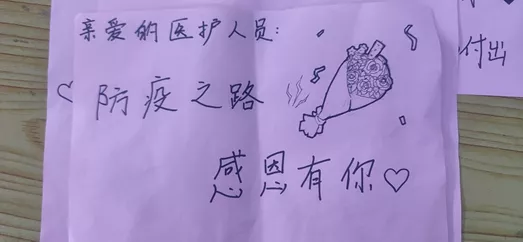 亲爱的医护人员:
防疫之路
感恩有你♡
付出